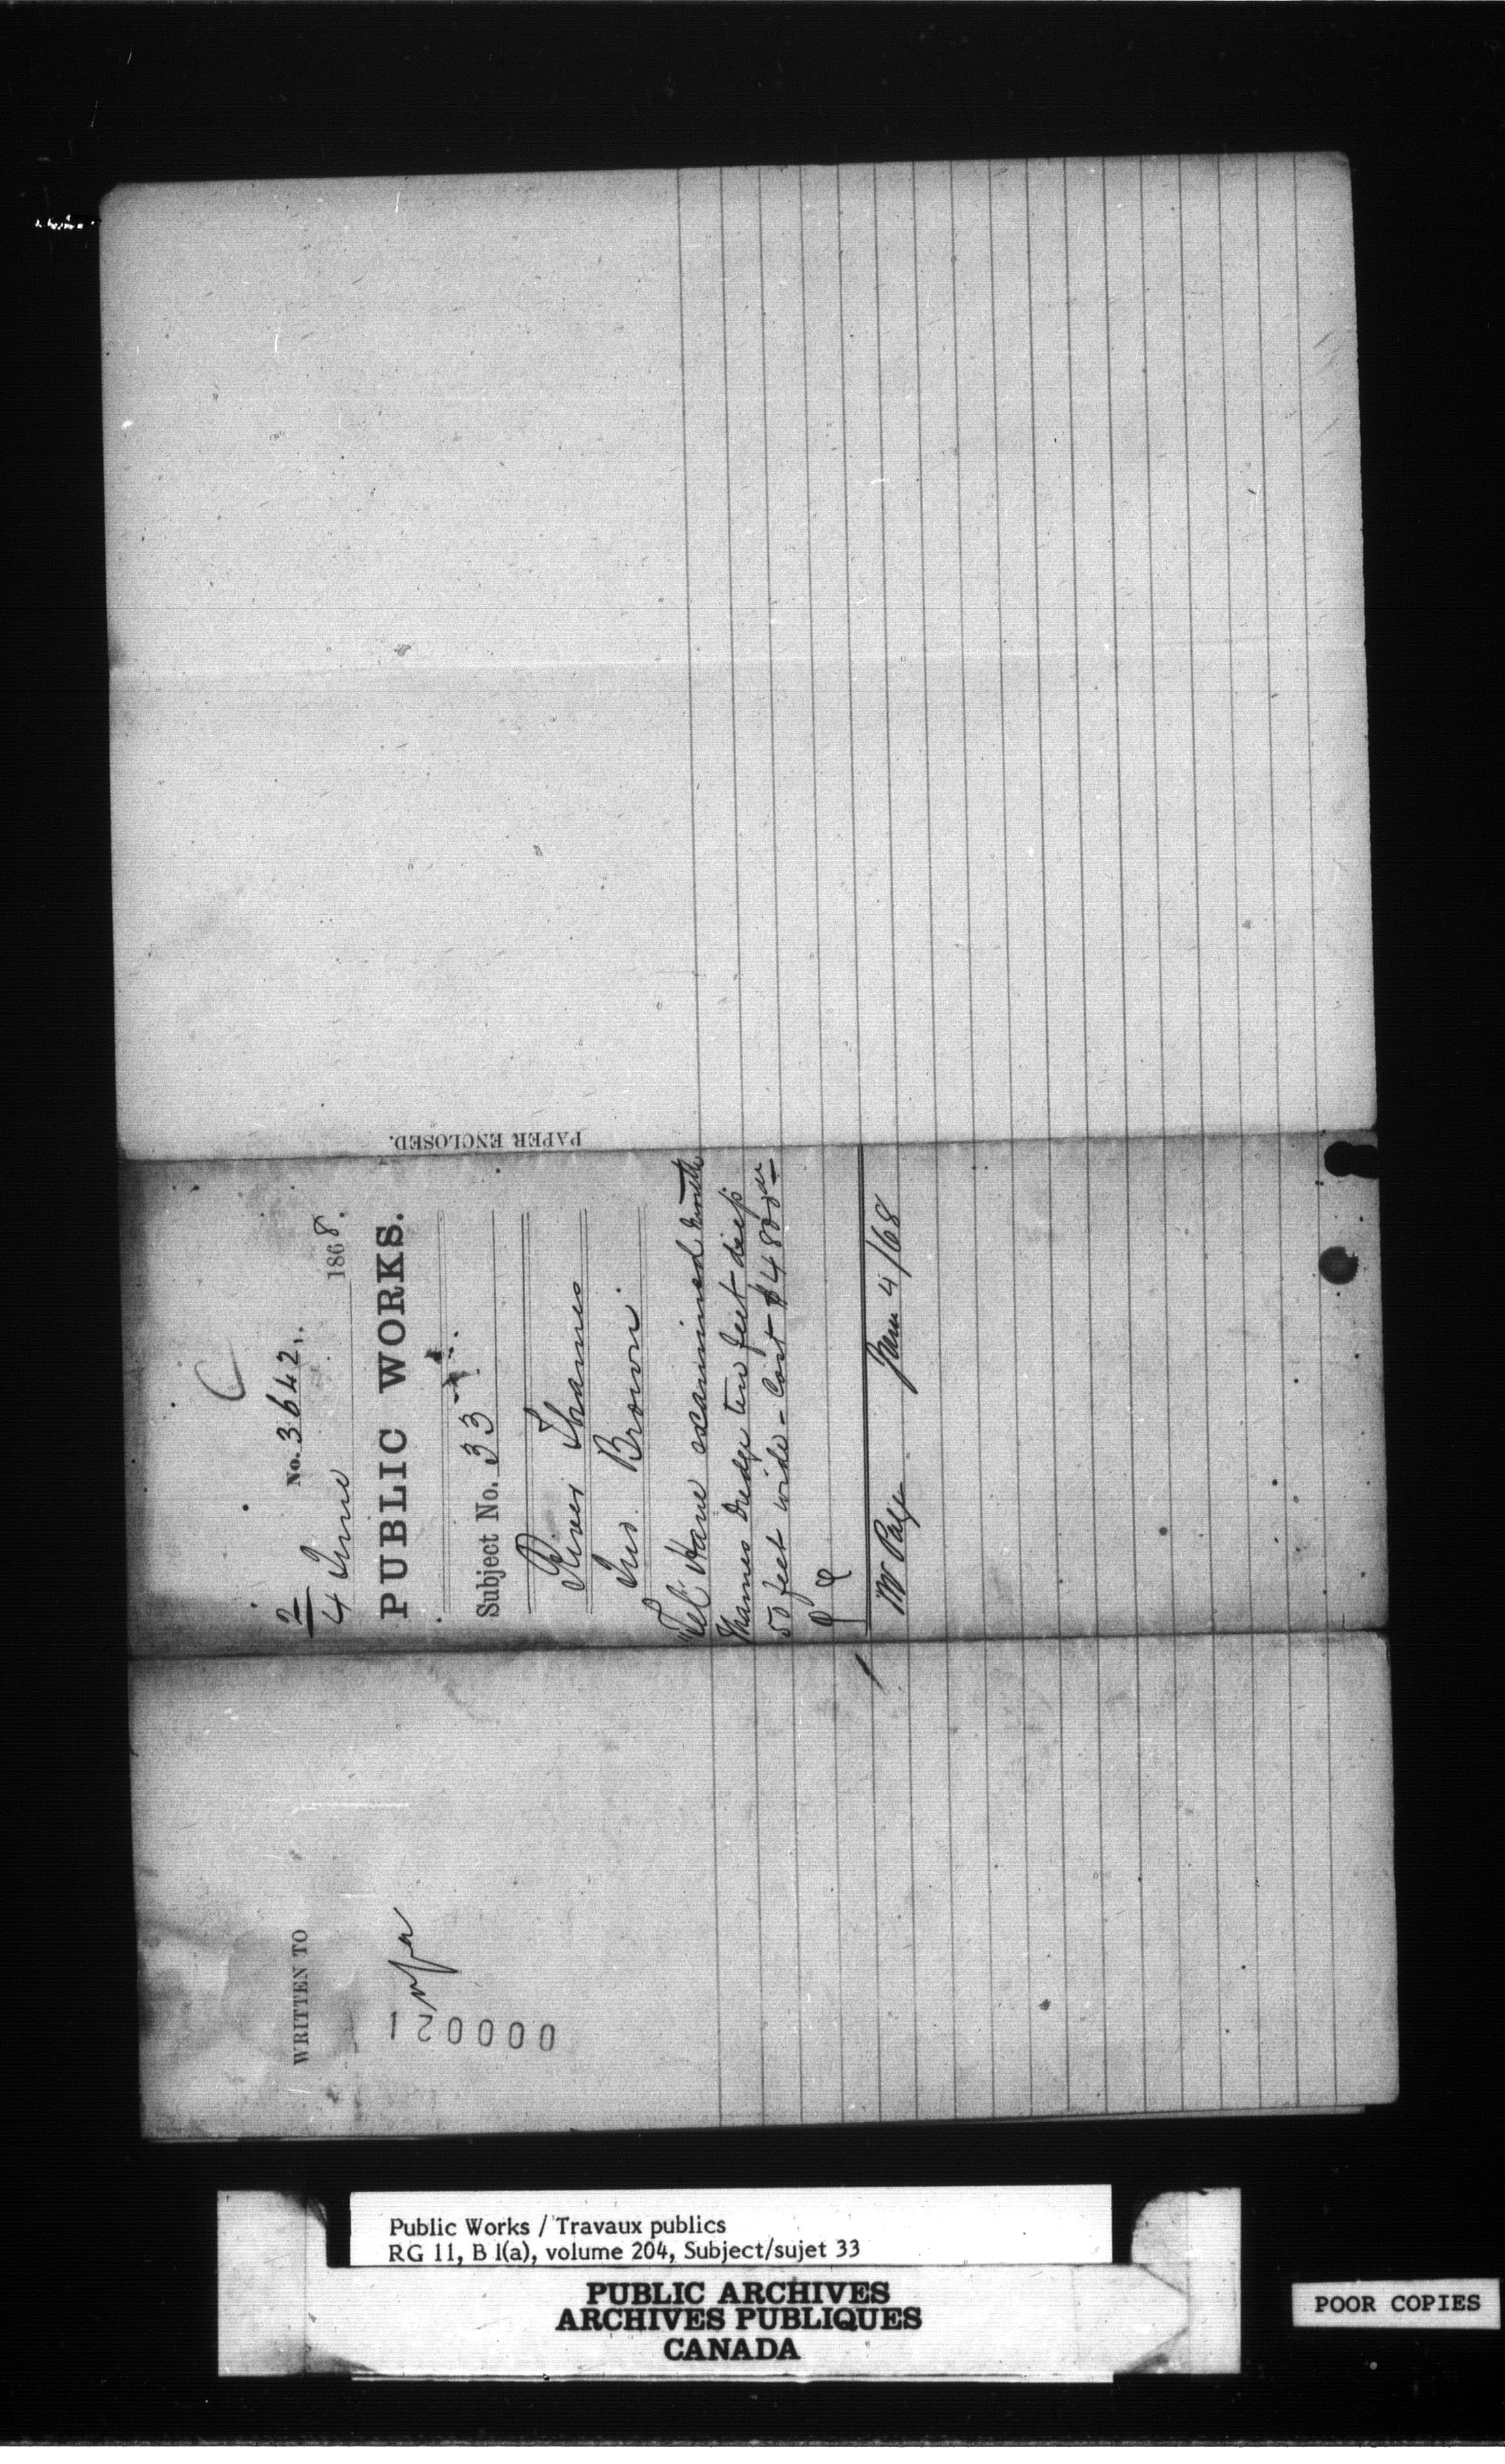 No. 3642.
2
4 June 1868.
PUBLIC WORKS.
Subject No. 33
River Thames
Jno. Brown.
"Tel" Have examined mouth
Thames dredge ten feet deep
50 feet wide - Cost $4800
Mr Page June 4/68
PAPER ENCLOSED.
WRITTEN TO
000021
Public Works / Travaux publics
RG 11, B 1(a), volume 204, Subject/sujet 33
PUBLIC ARCHIVES
ARCHIVES PUBLIQUES
CANADA
POOR COPIES